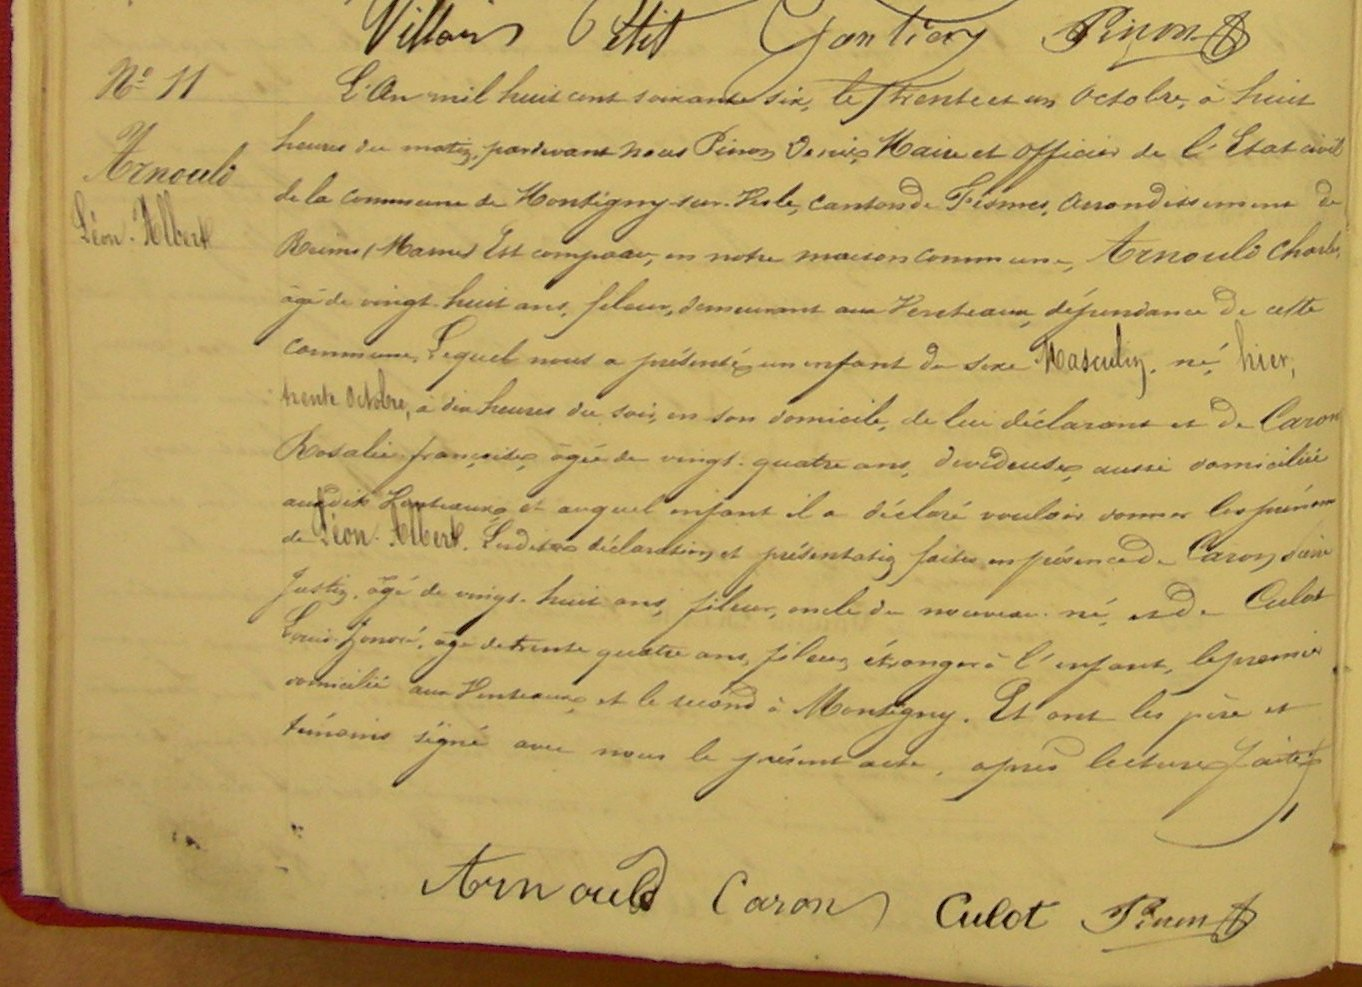 Villain Petit Gontier Pinon
Nº 11
L'An mil huit cent soixante six, le trente et un Octobre, à huit
Arnould
Léon-Albert
heures du matin, pardevant nous Pinon Denis Maire et officier de l'Etat civil
de la commune de Montigny-sur-Vesle, canton de Fismes, arrondissement de
Reims (Marne) Est comparu, en notre maison commune, Arnould Charles,
âgé de vingt-huit ans, fileur, demeurant aux Venteaux, dépendance de cette
commune, Lequel nous a présenté un enfant du sexe Masculin, né hier,
trente Octobre, à dix heures du soir, en son domicile, de lui déclarant et de Caron
Rosalie-françoise, âgée de vingt-quatre ans, dévideuse, aussi domiciliée
audit Venteaux, et auquel enfant il a déclaré vouloir donner les prénoms
de Léon-Albert. Lesdites déclaration et présentation faites en présence de Caron
Justin, âgé de vingt-huit ans, fileur, oncle du nouveau-né, et de Culot
Louis-honoré, âgé de trente quatre ans, fileur, étranger à l'enfant, le premier
domicilié aux Venteaux, et le second à Montigny. Et ont les père et
témoins signé avec nous le présent acte, après lecture faite
Arnould Caron Culot Pinon